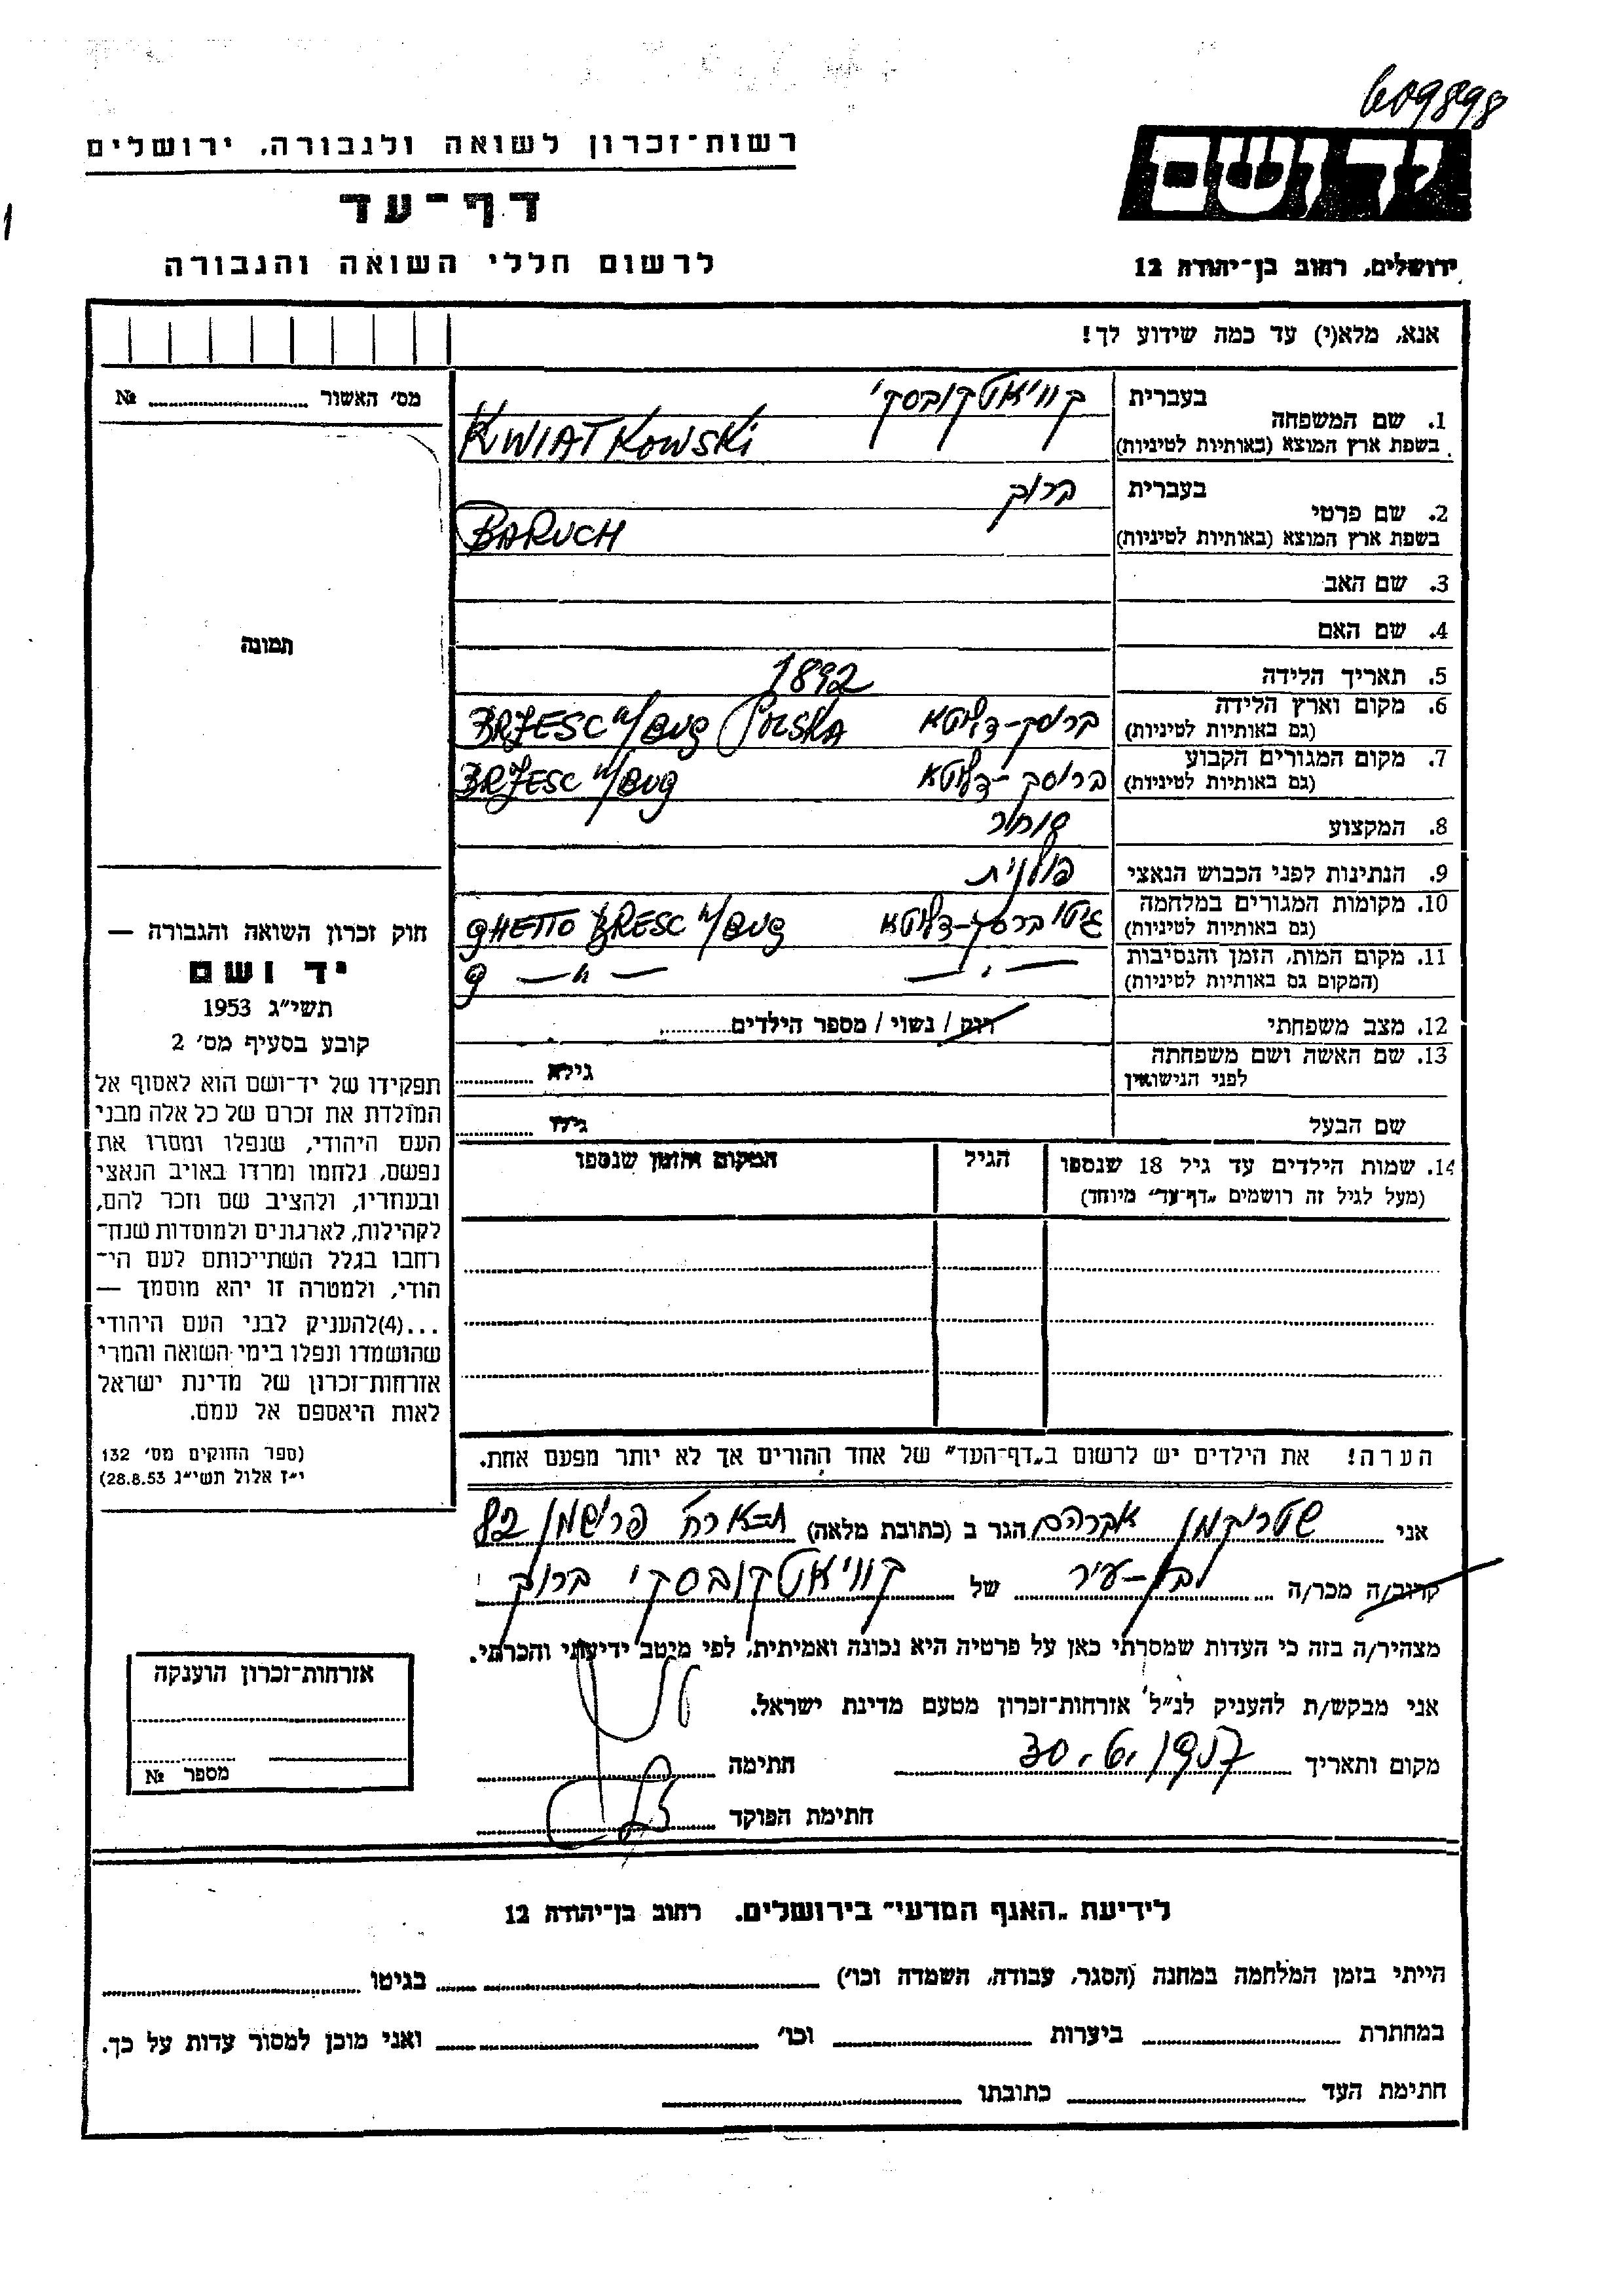 609898
רשות־זכרון לשואה ולגבורה, ירושלים
יד ושם
דף־עד
לרשום חללי השואה והגבורה
ירושלים, רחוב בן־יהודה 12
אנא, מלא(י) עד כמה שידוע לך!
מס׳ האשור № 
1. שם המשפחה
בעברית קוויאטקובסקי
בשפת ארץ המוצא (באותיות לטיניות) KWIATKOWSKI
2. שם פרטי
בעברית ברוך
בשפת ארץ המוצא (באותיות לטיניות) BARUCH
3. שם האב
4. שם האם
תמונה
5. תאריך הלידה 1892
6. מקום וארץ הלידה ברסק-ד׳ליטא BRZESC n/BUG POLSKA
(גם באותיות לטיניות)
7. מקום המגורים הקבוע ברסק-ד׳ליטא BRZESC n/BUG
(גם באותיות לטיניות)
8. המקצוע סוחר
9. הנתינות לפני הכבוש הנאצי פולנית
10. מקומות המגורים במלחמה גיטו ברסק-ד׳ליטא GHETTO BRESC n/BUG
(גם באותיות לטיניות)
11. מקום המות, הזמן והנסיבות — " — — " —
(המקום גם באותיות לטיניות)
12. מצב משפחתי רוק / נשוי / מספר הילדים
13. שם האשה ושם משפחתה
לפני הנישואין גילא
שם הבעל גילו
14. שמות הילדים עד גיל 18 שנספו
(מעל לגיל זה רושמים „דף־עד״ מיוחד)
הגיל
המקום והזמן שנספו
חוק זכרון השואה והגבורה —
יד ושם
תשי״ג 1953
קובע בסעיף מס׳ 2
תפקידו של יד־ושם הוא לאסוף אל
המולדת את זכרם של כל אלה מבני
העם היהודי, שנפלו ומסרו את
נפשם, נלחמו ומרדו באויב הנאצי
ובעוזריו, ולהציב שם וזכר להם,
לקהילות, לארגונים ולמוסדות שנח־
רחבו בגלל השתייכותם לעם הי־
הודי, ולמטרה זו יהא מוסמך —
...(4)להעניק לבני העם היהודי
שהושמדו ונפלו בימי השואה והמרי
אזרחות־זכרון של מדינת ישראל
לאות היאספם אל עמם.
(ספר החוקים מס׳ 132
י״ז אלול תשי״ג 28.8.53)
הערה! את הילדים יש לרשום ב„דף־העד״ של אחד ההורים אך לא יותר מפעם אחת.
אני שטריקמן אברהם הגר ב (כתובת מלאה) פרישמן 82
קרוב/ה מכר/ה בן-עיר של קוויאטקובסקי ברוך
מצהיר/ה בזה כי העדות שמסרתי כאן על פרטיה היא נכונה ואמיתית, לפי מיטב ידיעתי והכרתי.
אני מבקש/ת להעניק לנ״ל אזרחות־זכרון מטעם מדינת ישראל.
מקום ותאריך 30.6.1957 חתימה
חתימת הפוקד
אזרחות־זכרון הוענקה
מספר №
לידיעת „האגף המדעי״ בירושלים. רחוב בן־יהודה 12
הייתי בזמן המלחמה במחנה (הסגר, עבודה, השמדה וכו׳) בגיטו
במחתרת ביערות וכו׳ ואני מוכן למסור עדות על כך.
חתימת העד כתובתו